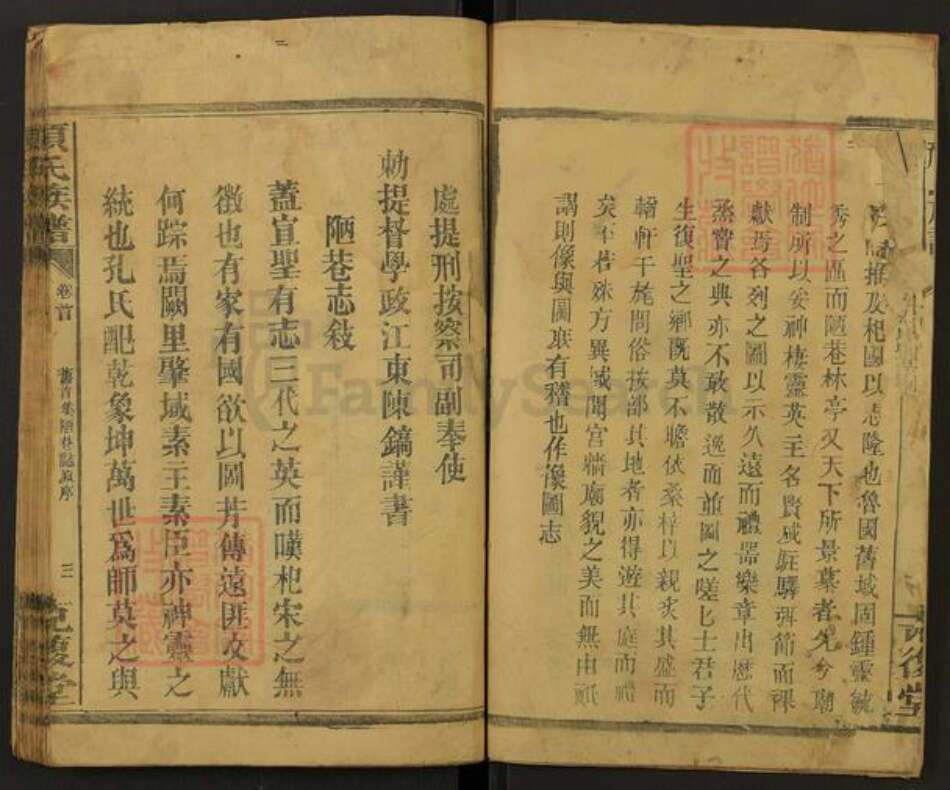 推及杞國以志隆也魯國舊域固鍾靈毓
秀之區而陋巷林亭又天下所景慕者先今廟
制所以妥神棲靈英主名賢咸駐驛弭節而祼
獻焉各列之圖以示久遠而禮器樂章出歷代
蒸嘗之典亦不敢散逸而並圖之嗟乎士君子
生復聖之鄉既莫不瞻依桑梓以親炙其盛而
輶軒干旄問俗按部其地者亦得遊其庭而禮
矣至若殊方異域聞宮牆廟貌之美而無由祇
謁則像與圖厥有稽也作像圖志
處提刑按察司副奉使
勅提督學政江東陳鎬謹書
陋巷志敘
蓋宣聖有志三代之英而嘆杞宋之無
徵也有家有國欲以圖芳傳遠匪文獻
何踪焉闕里肇域素王素臣亦神靈之
統也孔氏配乾象坤萬世爲師莫之與
氏族譜
卷首
舊首集陋巷誌原序
三
克復堂
FamilySearch